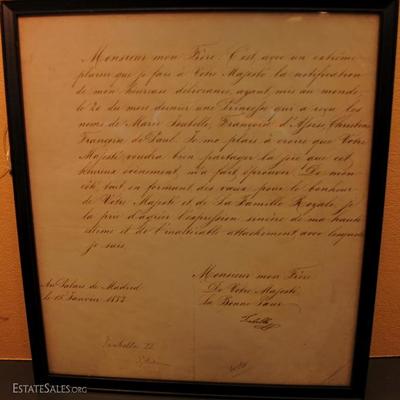 Monsieur mon Frère. C'est avec un extrême
plaisir que je fais à Votre Majesté la notification
de mon heureuse délivrance, ayant mis au monde,
le 20 du mois dernier une Princesse qui a reçu les
noms de Marie Isabelle, Françoise d'Assise, Christine
Françoise de Paul. Je me plais à croire que Votre
Majesté voudra bien partager la joie que cet
heureux événement m'a fait éprouver. De mon
côté, tout en formant des vœux pour le bonheur
de Votre Majesté et de La Famille Royale, je
la prie d'agréer l'expression sincère de ma haute
estime et de l'inaltérable attachement avec lesquels
je suis
Monsieur mon Frère
De Votre Majesté
la Bonne Sœur
Au Palais de Madrid
le 15 Janvier 1852
Isabelle
Isabella II
ESTATESALES.ORG